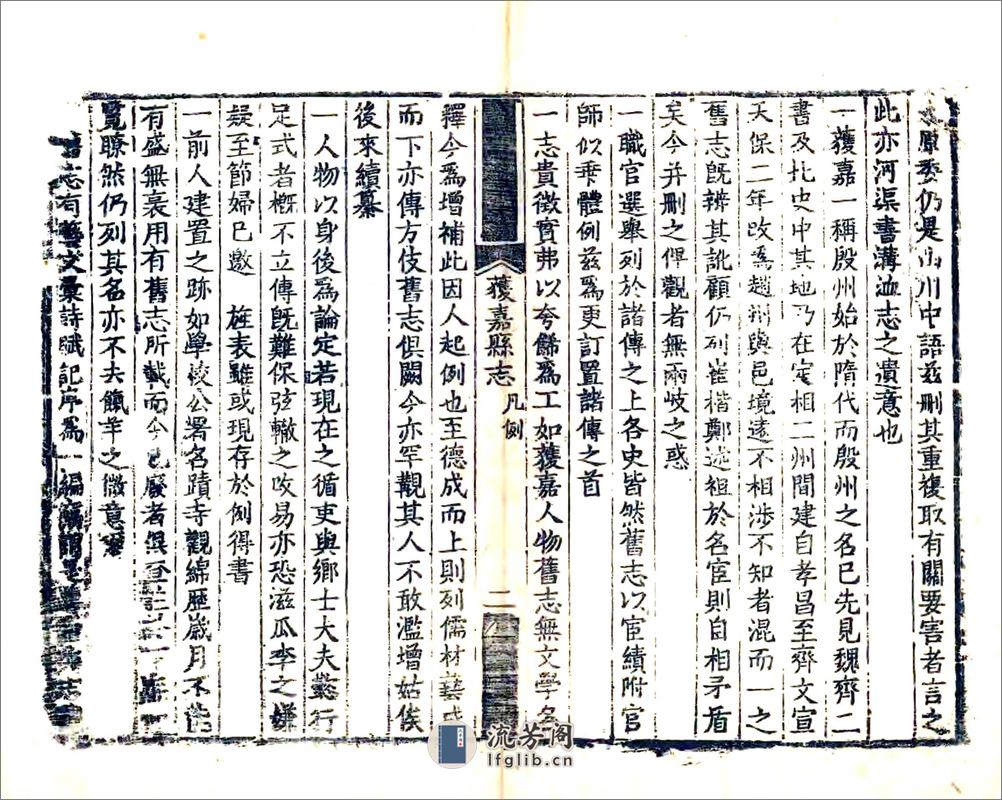 原委仍是山川中語茲刪其重複取有關要害者言之
此亦河渠書溝洫志之遺意也
一獲嘉一稱殷州始於隋代而殷州之名已先見魏齊二
書及北史中其地乃在定相二州間建自孝昌至齊文宣
天保二年改爲趙州與邑境遠不相涉不知者混而一之
舊志既辨其訛顧仍列崔楷鄭述祖於名宦則自相矛盾
矣今并刪之俾觀者無兩岐之惑
一職官選舉列於諸傳之上各史皆然舊志以宦績附官
師似乖體例茲爲更訂置諸傳之首
一志貴徵實弗以夸餙爲工如獲嘉人物舊志無文學名
獲嘉縣志
凡例
二
釋今爲增補此因人起例也至德成而上則列儒材藝成
而下亦傳方伎舊志俱闕今亦罕觀其人不敢濫增姑俟
後來續纂
一人物以身後爲論定若現在之循吏與鄉士大夫懿行
足式者概不立傳既難保弦轍之攺易亦恐滋瓜李之嫌
疑至節婦已邀 旌表雖或現存於例得書
一前人建置之跡如學校公署名蹟寺觀綿歷歲月不能
有盛無衰用有舊志所載而今已廢者俱
覽瞭然仍列其名亦不去餼羊之微意爾
志有藝文彙詩賦記序爲一編